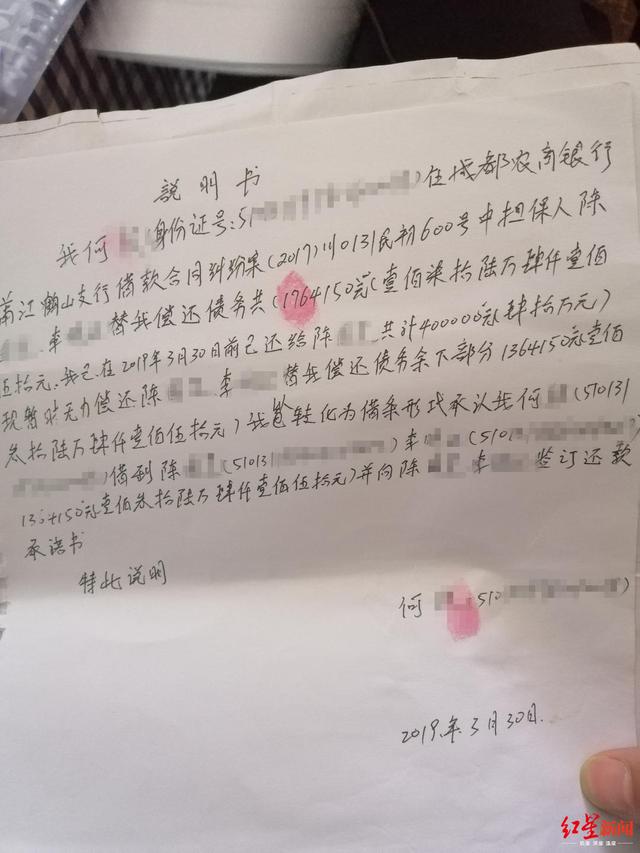 说明书
我何 (身份证号:510 )在成都农商银行
蒲江鹤山支行借款合同纠纷案(2017)川0131民初600号中担保人陈
、李 替我偿还债务共(1764150元(壹佰柒拾陆万肆仟壹佰
伍拾元.我已在2019年3月30日前已还给陈 共计400000元肆拾万元)
现暂时无力偿还陈 、李 替我偿还债务余下部分1364150元壹佰
叁拾陆万肆仟壹佰伍拾元)我 转化为借条形式承认我何 (510131
)借到陈 (510131 )李 (510 )
1364150元壹佰叁拾陆万肆仟壹佰伍拾元)并向陈 李 签订还款
承诺书
特此说明
何 (510 )
2019年3月30日.
红星新闻